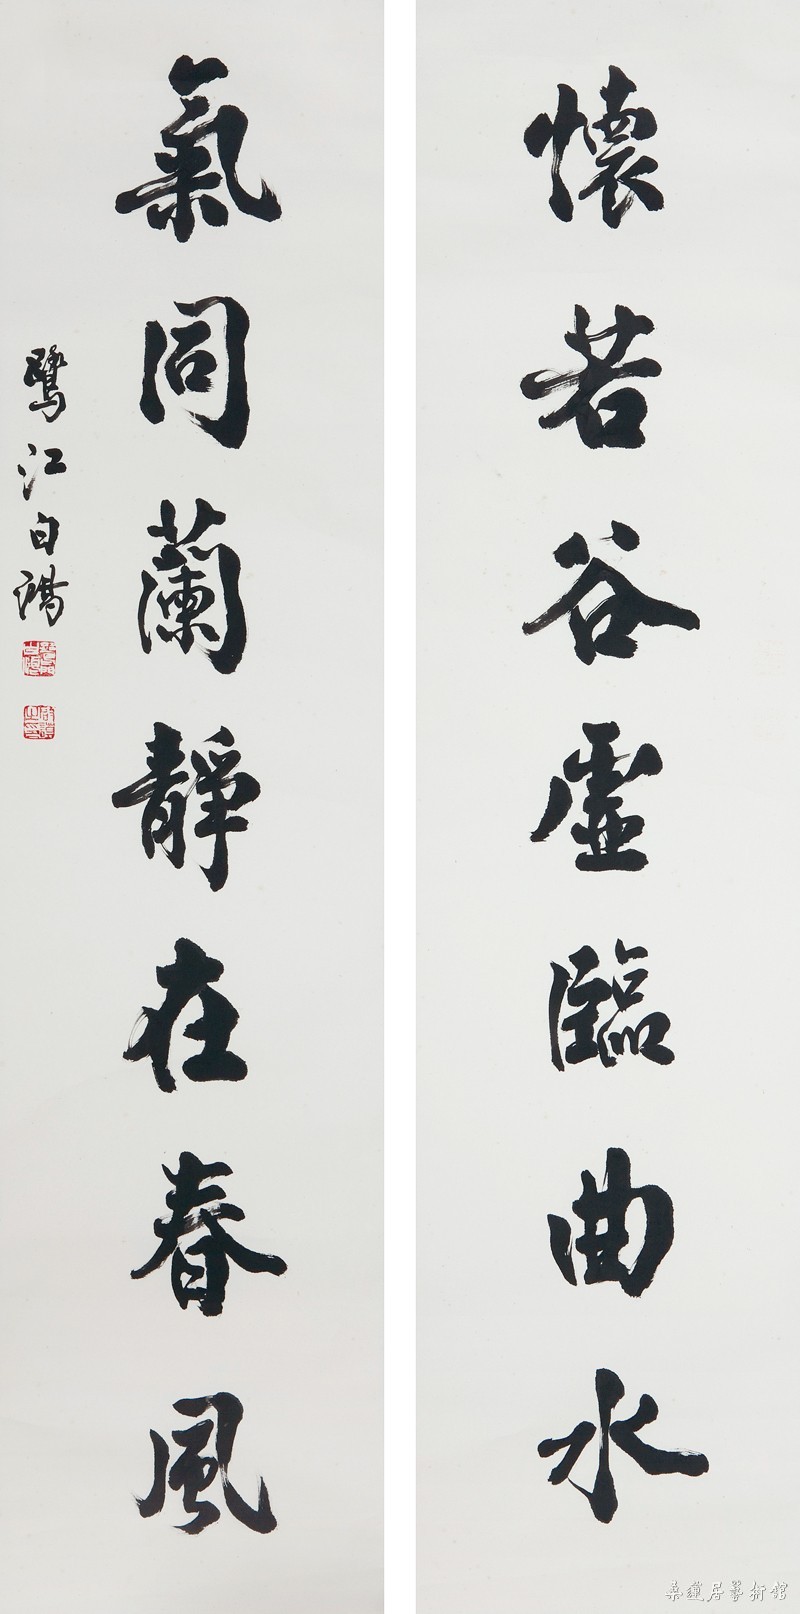 懷若谷虛臨曲水
氣同蘭靜在春風
鷺江白鴻
桑蓮居藝術館